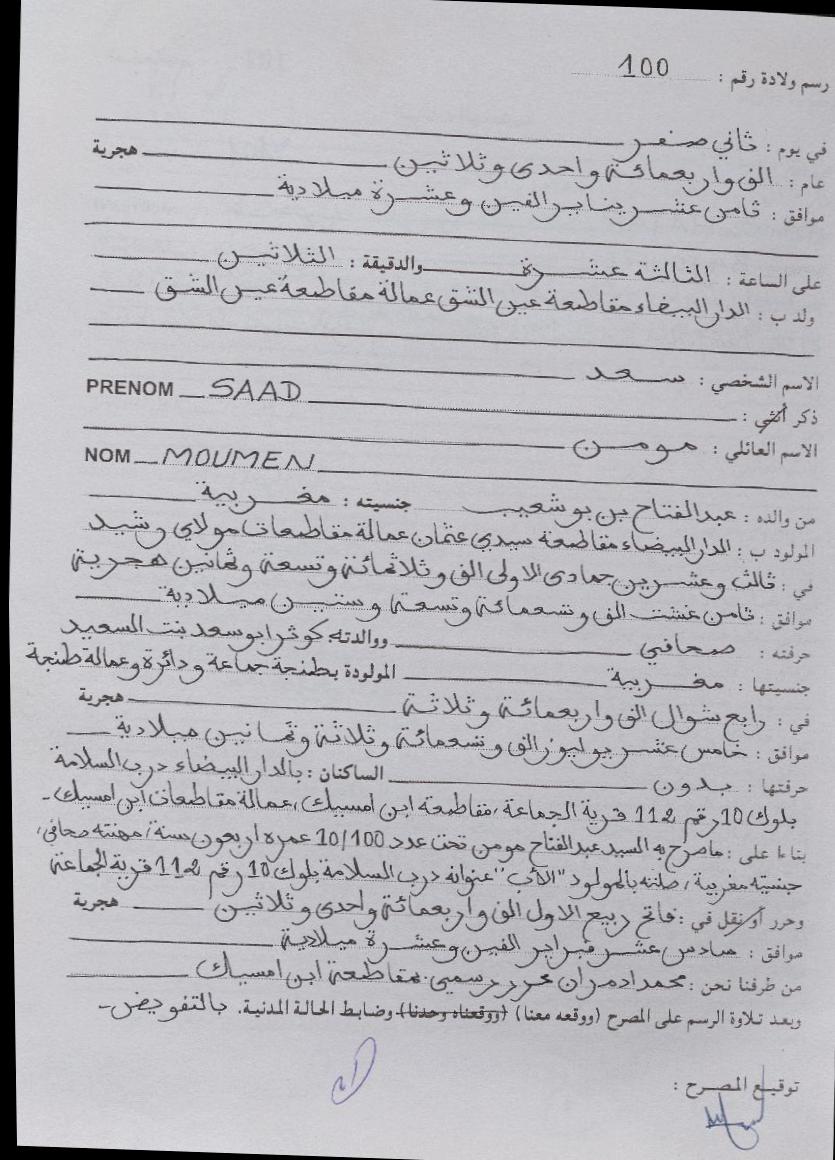 رسم ولادة رقم : 100
في يوم : ثاني صفر
عام : الف واربعمائة واحدى وثلاثين هجرية
موافق : ثامن عشر يناير الفين وعشرة ميلادية
على الساعة : الثالثة عشرة والدقيقة : الثلاثين
ولد ب : الدار البيضاء مقاطعة عين الشق عمالة مقاطعة عين الشق
الاسم الشخصي : سعد
PRENOM SAAD
ذكر أنثى :
الاسم العائلي : مومن
NOM MOUMEN
من والده : عبد الفتاح بن بوشعيب جنسيته : مغربية
المولود ب : الدار البيضاء مقاطعة سيدي عثمان عمالة مقاطعات مولاي رشيد
في : ثالث وعشرين جمادى الاولى الف وثلاثمائة وتسعة وثمانين هجرية
موافق : ثامن غشت الف وتسعمائة وتسعة وستين ميلادية
حرفته : صحافي ووالدته : كوثر ابوسعد بنت السعيد
جنسيتها : مغربية المولودة بطنجة جماعة ودائرة وعمالة طنجة
في : رابع شوال الف واربعمائة وثلاثة هجرية
موافق : خامس عشر يوليوز الف وتسعمائة وثلاثة وثمانين ميلادية
حرفتها : بدون الساكنان : بالدار البيضاء درب السلامة
بلوك 10 رقم 2-11 قرية الجماعة، مقاطعة ابن امسيك، عمالة مقاطعات ابن امسيك -
بناءا على : ماصرح به السيد عبد الفتاح مومن تحت عدد 10/100 عمره اربعون سنة، مهنته صحافي،
جنسيته مغربية، صلته بالمولود "الأب" عنوانه درب السلامة بلوك 10 رقم 2-11 قرية الجماعة
وحرر أو نقل في : فاتح ربيع الاول الف واربعمائة واحدى وثلاثين هجرية
موافق : سادس عشر فبراير الفين وعشرة ميلادية
من طرفنا نحن : محمد ادمران محرر رسمي بمقاطعة ابن امسيك
وبعد تلاوة الرسم على المصرح (ووقعه معنا) (ووقعناه وحدنا) وضابط الحالة المدنية. بالتفويض -
توقيع المصرح :